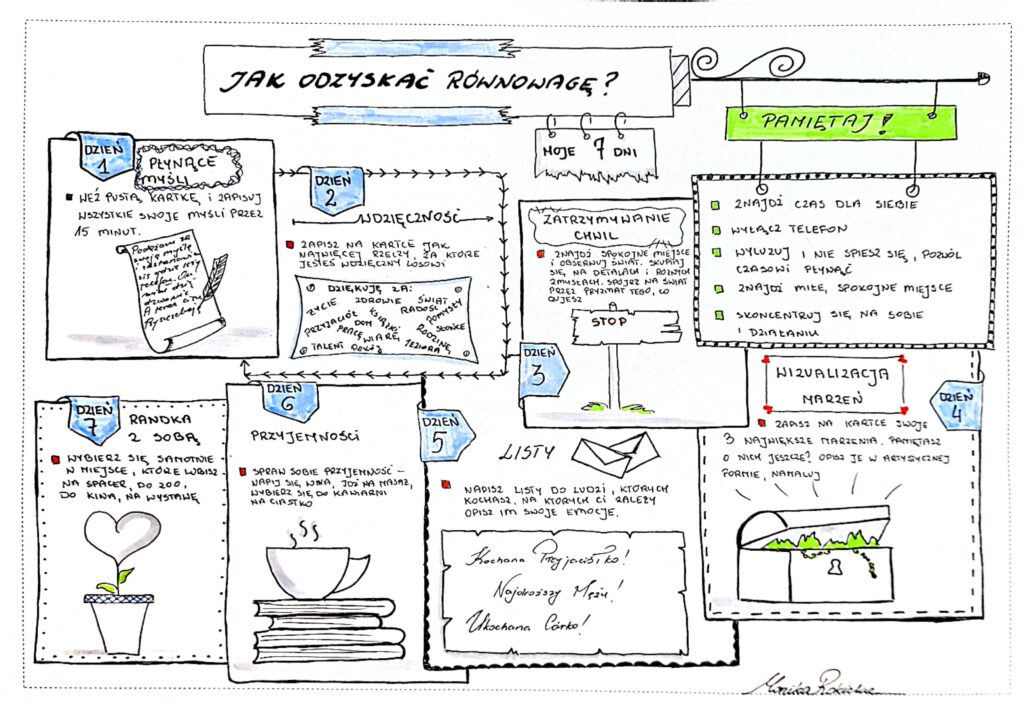 JAK ODZYSKAĆ RÓWNOWAGĘ?
MOJE 7 DNI
PAMIĘTAJ!
ZNAJDŹ CZAS DLA SIEBIE
WYŁĄCZ TELEFON
WYLUZUJ I NIE SPIESZ SIĘ, POZWÓL
CZASOWI PŁYNĄĆ
ZNAJDŹ MIŁE, SPOKOJNE MIEJSCE
SKONCENTRUJ SIĘ NA SOBIE
I DZIAŁANIU
DZIEŃ
1
PŁYNĄCE
MYŚLI
WEŹ PUSTĄ KARTKĘ, I ZAPISUJ
WSZYSTKIE SWOJE MYŚLI PRZEZ
15 MINUT.
Podążam za
swoją myślą
DZIEŃ
2
WDZIĘCZNOŚĆ
ZAPISZ NA KARTCE JAK
NAJWIĘCEJ RZECZY, ZA KTÓRE
JESTEŚ WDZIĘCZNY LOSOWI
DZIĘKUJĘ ZA:
ŻYCIE ZDROWIE ŚWIAT
PRZYJACIÓŁ KSIĄŻKI RADOŚĆ POMYSŁY
DOM SŁOŃCE
PRACĘ WIARĘ RODZINĘ
TALENT JEZIORA
DZIEŃ
3
ZATRZYMYWANIE
CHWIL
ZNAJDŹ SPOKOJNE MIEJSCE
I OBSERWUJ ŚWIAT. SKUPIAJ
SIĘ NA DETALACH I RÓŻNYCH
ZMYSŁACH. SPÓJRZ NA ŚWIAT
PRZEZ PRYZMAT TEGO, CO
CZUJESZ
STOP
DZIEŃ
4
WIZUALIZACJA
MARZEŃ
ZAPISZ NA KARTCE SWOJE
3 NAJWIĘKSZE MARZENIA. PAMIĘTASZ
O NICH JESZCZE? OPISZ JE W ARTYSTYCZNEJ
FORMIE, NAMALUJ
DZIEŃ
5
LISTY
NAPISZ LISTY DO LUDZI, KTÓRYCH
KOCHASZ, NA KTÓRYCH CI ZALEŻY
OPISZ IM SWOJE EMOCJE.
Kochana Przyjaciółko!
Najdroższy Mężu!
Ukochana Córko!
DZIEŃ
6
PRZYJEMNOŚCI
SPRAW SOBIE PRZYJEMNOŚĆ –
NAPIJ SIĘ WINA, IDŹ NA MASAŻ,
WYBIERZ SIĘ DO KAWIARNI
NA CIASTKO
DZIEŃ
7
RANDKA
Z SOBĄ
WYBIERZ SIĘ SAMOTNIE
W MIEJSCE, KTÓRE LUBISZ
NA SPACER, DO ZOO,
DO KINA, NA WYSTAWĘ
Monika